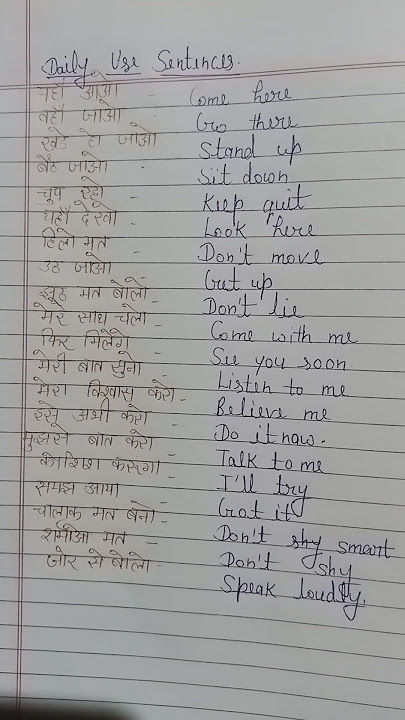 Daily Use Sentences.
यहाँ आओ - Come here
वहाँ जाओ - Go there
खडे हो जाओ - Stand up
बैठ जाओ - Sit down
चुप रहो - Keep quit
यहाँ देखो - Look here
हिलो मत - Don't move
उठ जाओ - Get up
झूठ मत बोलो - Don't lie
मेरे साथ चलो - Come with me
फिर मिलेंगे - See you soon.
मेरी बात सुनो - Listen to me
मेरा विश्वास करो - Believe me
इसे अभी करो - Do it now.
मुझसे बात करो - Talk to me
कोशिश करूंगा - I'll try
समझ आया - Got it
चालाक मत बनो - Don't shy smart
शर्माओ मत - Don't shy
जोर से बोलो - Speak loudly.